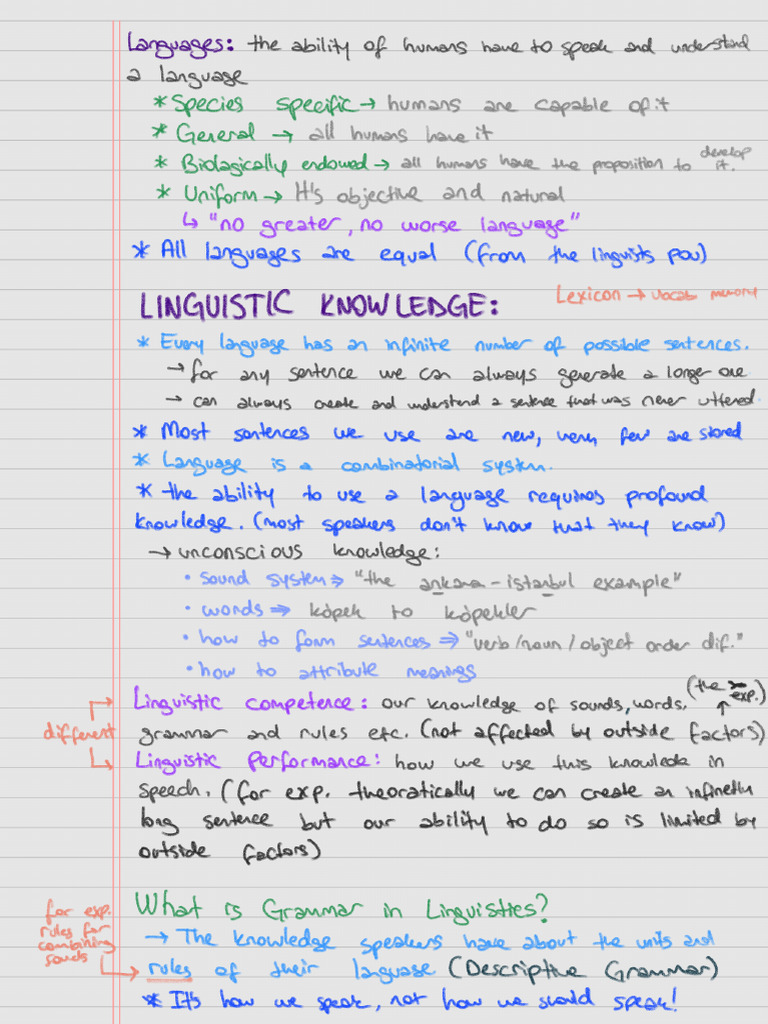 Languages: the ability of humans have to speak and understand
a language
* Species specific → humans are capable of it
* General → all humans have it
* Biologically endowed → all humans have the proposition to develop it.
* Uniform → It's objective and natural
↳ "no greater, no worse language"
* All languages are equal (from the linguists pov)
LINGUISTIC KNOWLEDGE:
Lexicon → vocab memory
* Every language has an infinite number of possible sentences.
→ for any sentence we can always generate a longer one
→ can always create and understand a sentence that was never uttered.
* Most sentences we use are new, very few are stored
* Language is a combinatorial system.
* the ability to use a language requires profound
knowledge. (most speakers don't know that they know)
→ unconscious knowledge:
• sound system ⇒ "the ankara - istanbul example"
• words ⇒ köpek to köpekler
• how to form sentences ⇒ "verb/noun/object order dif."
• how to attribute meanings
Linguistic competence: our knowledge of sounds, words, (the exp.)
different
grammar and rules etc. (not affected by outside factors)
Linguistic Performance: how we use this knowlede in
speech. (for exp. theoratically we can create an infinetly
long sentence but our ability to do so is limited by
outside factors)
What is Grammar in Linguistics?
for exp.
rules for
combining
sounds
→ The knowledge speakers have about the units and
rules of their language (Descriptive Grammar)
* It's how we speak, not how we should speak!